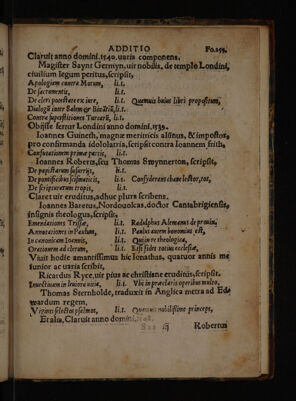 ADDITIO Fo.255.
Claruit anno domini.1540.uaria componens.
Magister Saynt Germyn, uir nobilis, de templo Londini,
ciuilium legum peritus, scripsit,
Apologiam contra Morum, li.1.
De sacramentis, li.1.
De cleri potestate ex iure, li.1. Quemuis huius libri propositum,
Dialogū inter Salem & Bizāciū, li.1.
Contra superstitiones Turcarū, li.1.
Obijsse fertur Londini anno domini.1539.
Ioannes Guineth, magnæ meritricis alūnus, & impostor,
pro confirmanda idololatria, scripsit contra Ioannem frith,
Confutationem primæ partis, li.1.
Ioannes Roberts, seu Thomas Swynnerton, scripsit,
De papistarum li.1.
De pontificibus li.1. Considerent
De scripturarum tropis, li.1.
Claret uir eruditus, adhuc plura scribens.
Ioannes Baretus, Nordouolcas, doctor Cantabrigiensis,
insignis theologus, scripsit,
Emendationes li.1. Radulphus Alemanus de
Annotationes in Paulum, li.1. Paulus autem bonorum est,
In canonicam Ioannis, li.1. Quum re theologica,
Orationem ad clerum, li.1. Bis uocior ecclesiæ,
Viuit hodie amantissimus hic Ionathas, quatuor annis me
iunior ac uaria scribit,
Ricardus Ryce, uir pius ac christiane eruditus, scripsit.
Inuectiuam in li.1. Vbi in præclaris operibus multo,
Thomas Sternholde, traduxit in Anglica metra ad Ed
wardum regem,
selectos psalmos, li.1. nobilissime princeps,
Et alia, Claruit anno domini
Sss iij Robertus